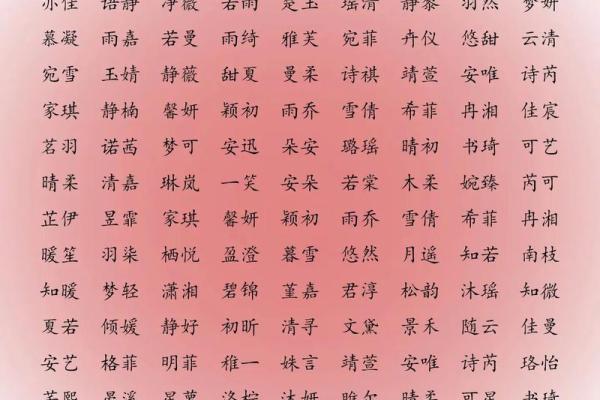 亦佳 语静 净薇 若雨 楚玉 瑶清 静黎 羽然 梦妍
慕凝 雨嘉 若曼 雨绮 雅芙 宛菲 卉仪 悠甜 云清
宛雪 玉婧 静薇 甜夏 曼柔 诗祺 靖萱 安唯 诗芮
家琪 静楠 馨妍 颖初 雨乔 雪倩 希菲 冉湘 佳宸
茗羽 诺茜 梦可 安迅 朵安 璐瑶 晴初 书琦 可艺
晴柔 清嘉 琳岚 一笑 安朵 若棠 木柔 婉臻 芮可
芷伊 昱霏 家琪 馨妍 颖初 雨乔 雪倩 希菲 冉湘
暖笙 羽柒 栖悦 盈澄 暮雪 悠然 月遥 知若 南枝
知暖 梦轻 潇湘 碧锦 堇嘉 君淳 松韵 沐瑶 知微
夏若 倾媛 静好 初昕 清寻 文黛 景禾 随云 佳曼
安艺 格菲 明菲 稚一 姝言 靖萱 安唯 诗芮 珞怡
洛柠 沐妍 晴柔 可星 书琦